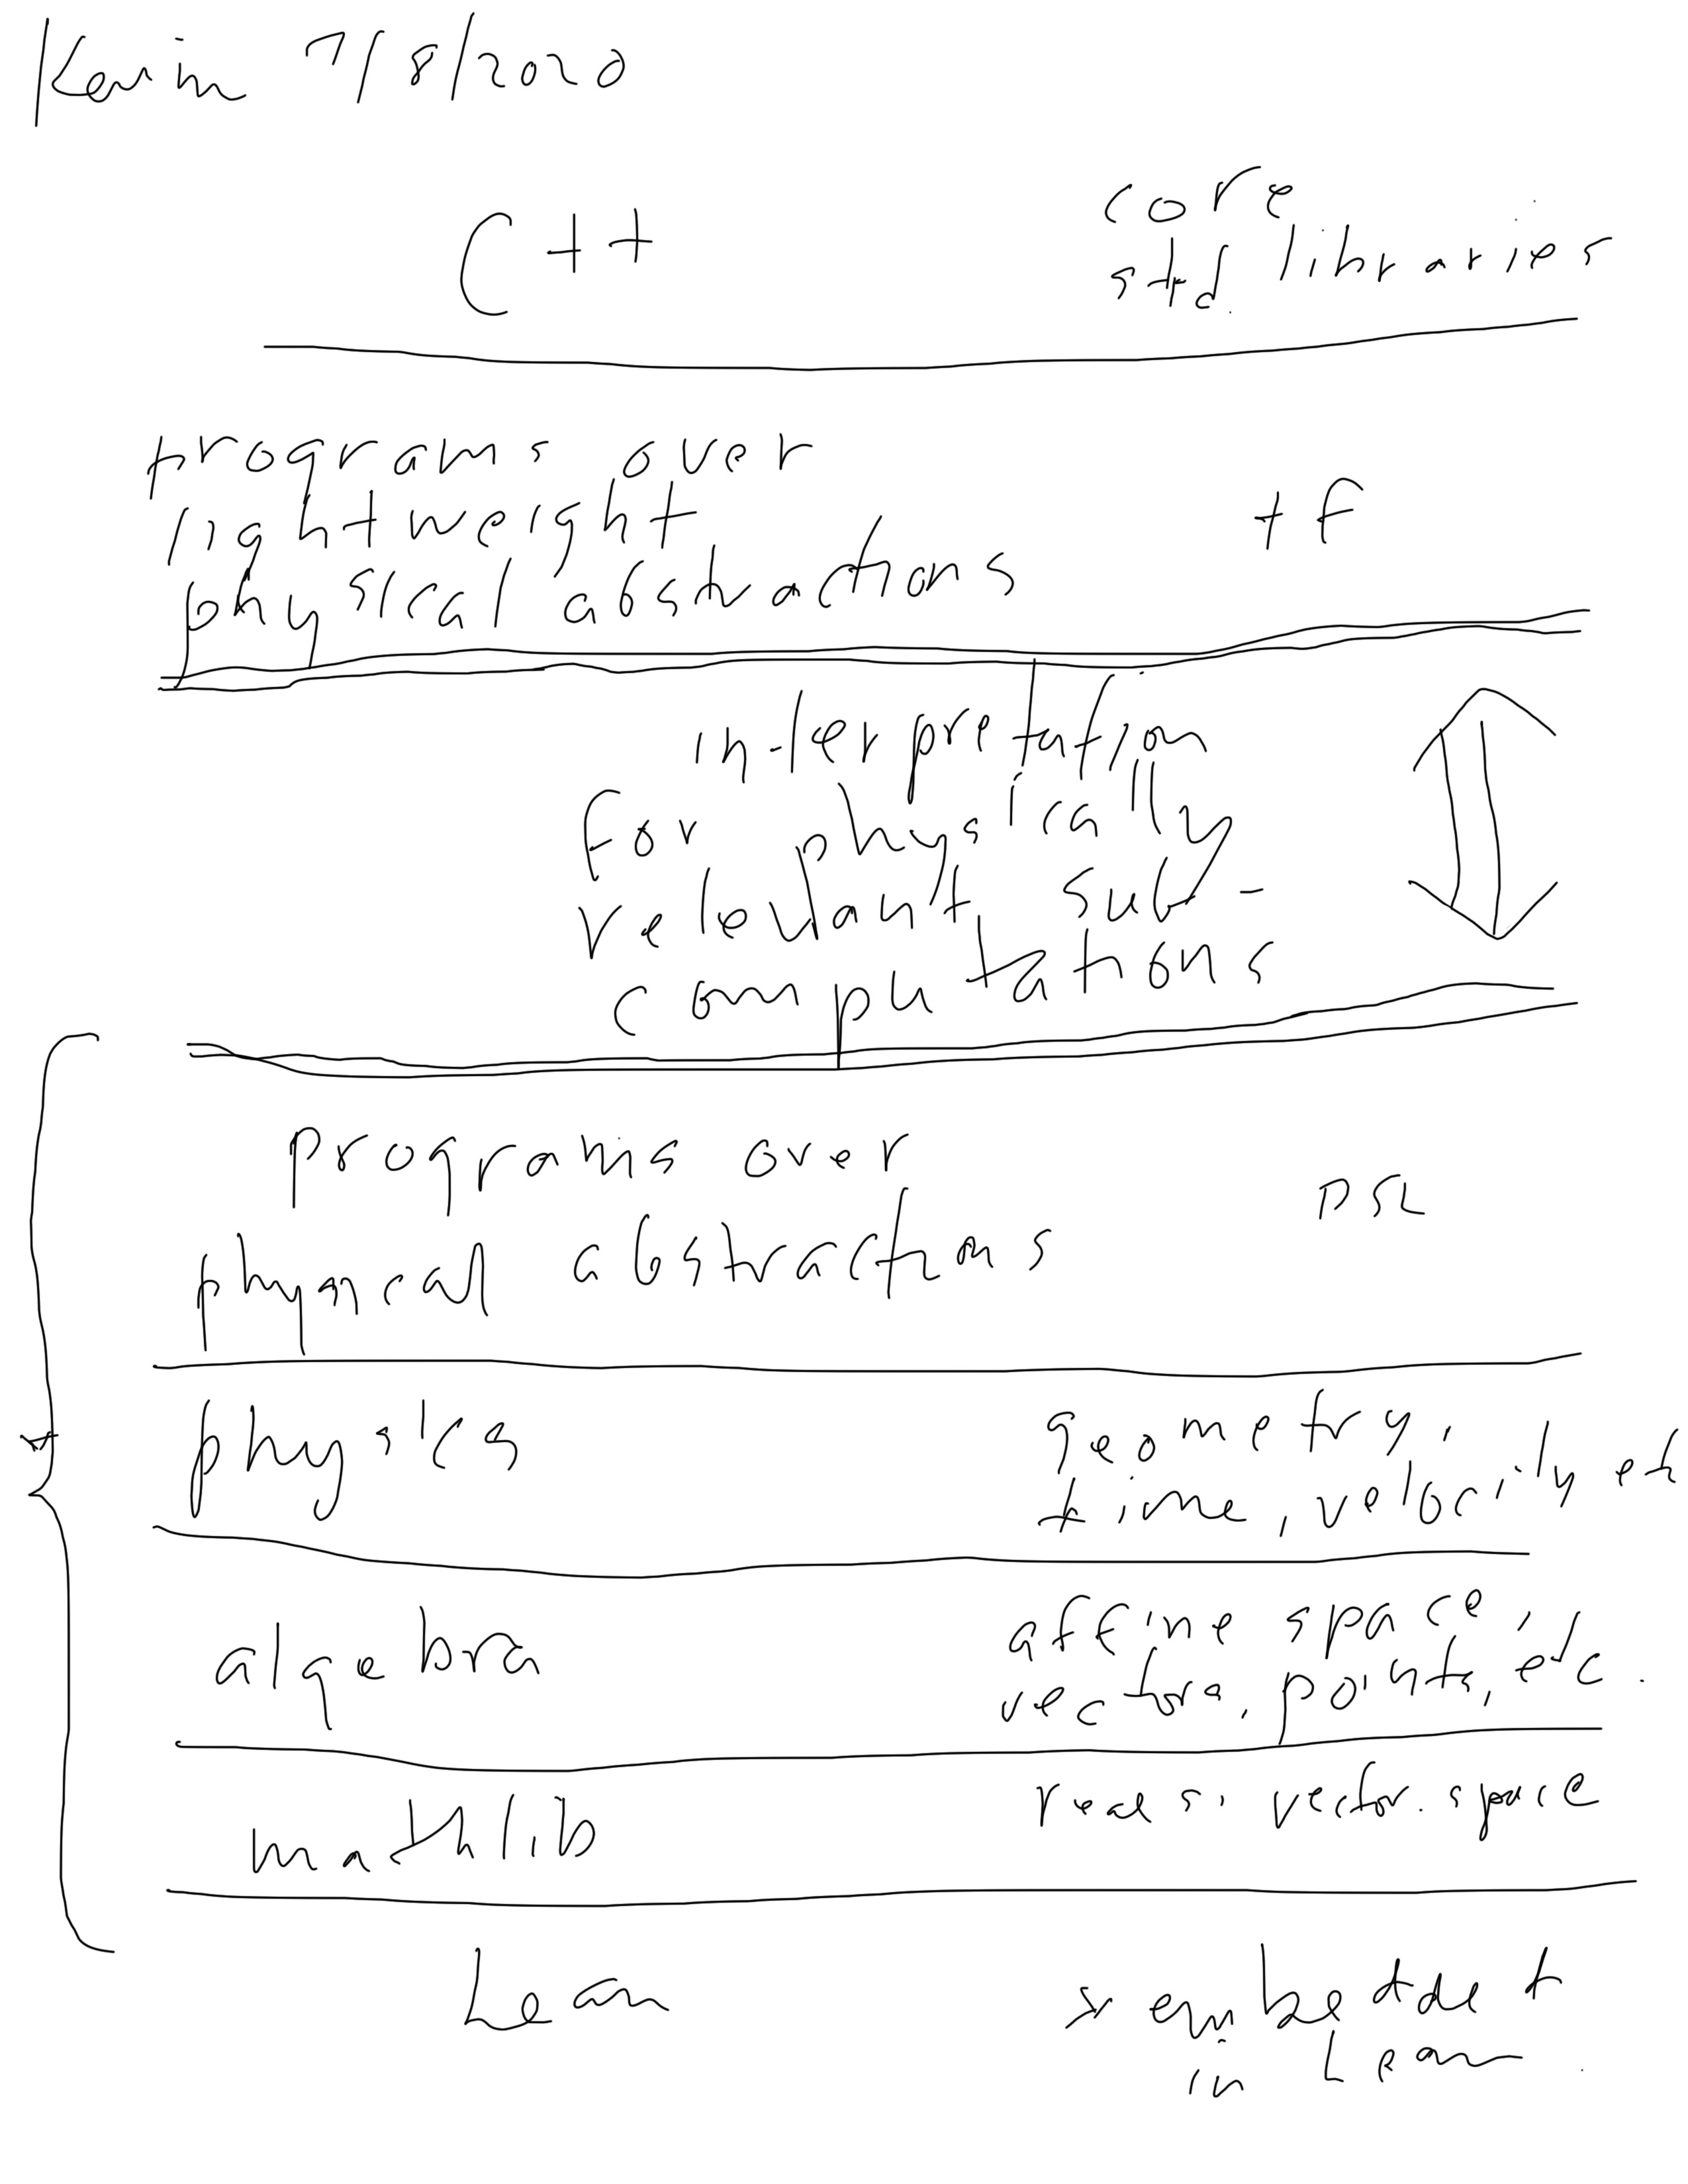 Kevin 7/8/2020
C++
core
std. libraries
programs over
lightweight
physical abstractions
tf
interpretation
for physically
relevant sub-
computations
programs over
physical abstractions
DSL
physics
geometry,
time, velocity etc
algebra
affine space,
vectors, points, etc.
mathlib
reals, vectr. space
Lean
in Lean